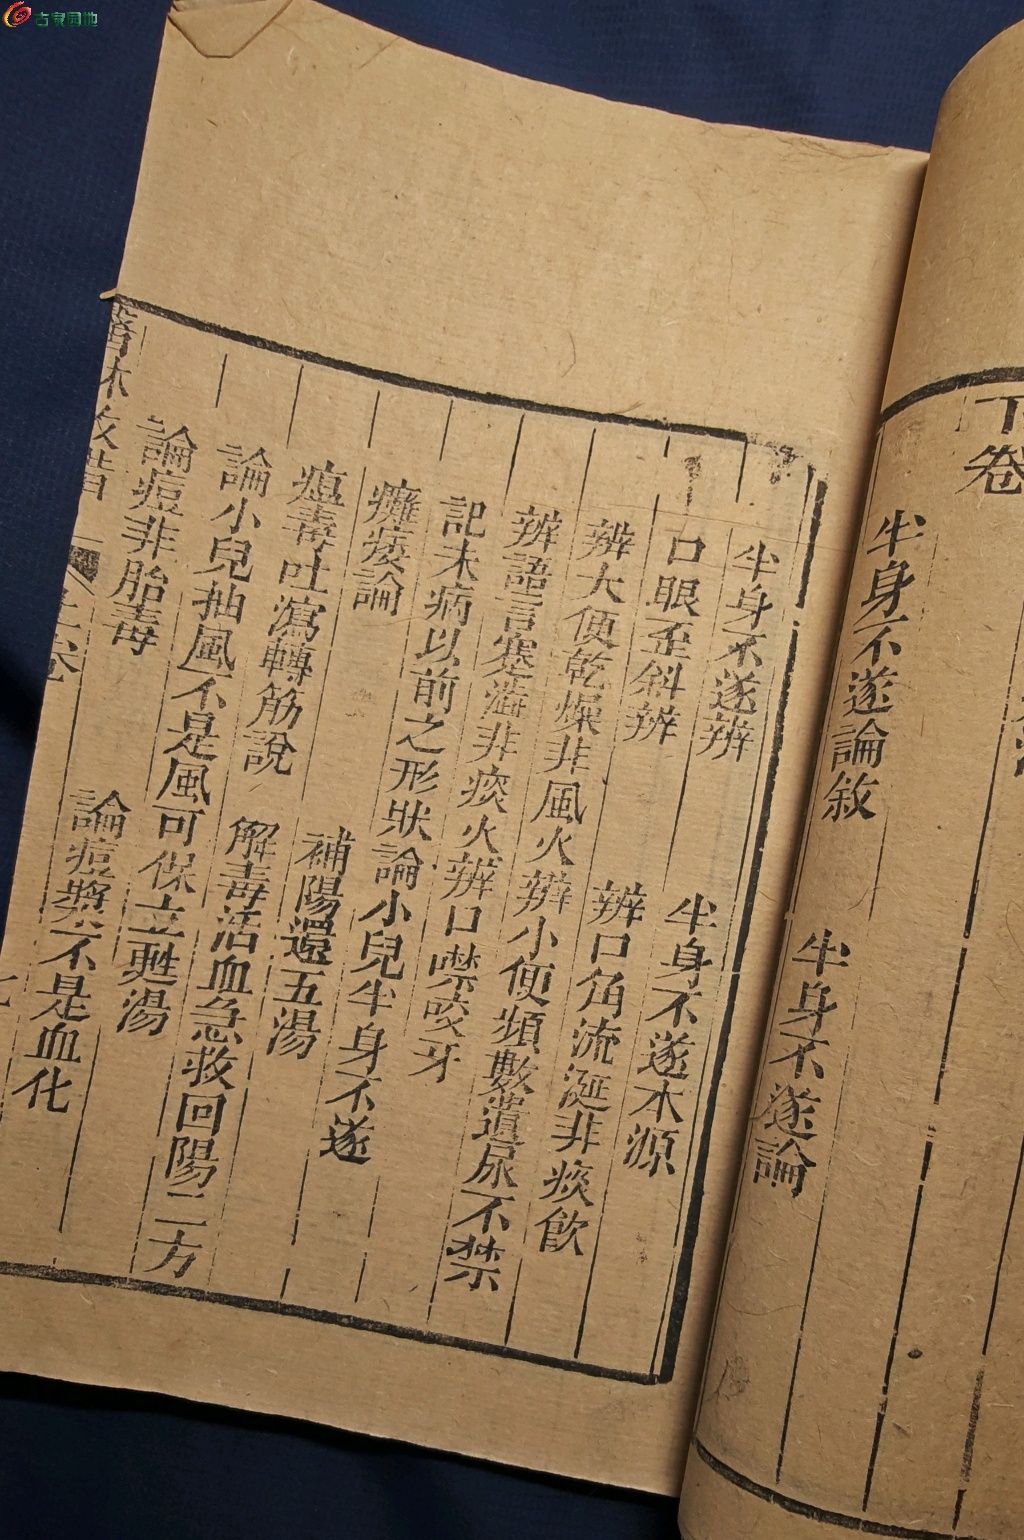 古泉园地
下卷
半身不遂論敘
半身不遂論
半身不遂辨
半身不遂本源
口眼歪斜辨
辨口角流涎非痰飲
辨大便乾燥非風火
辨小便頻數遺尿不禁
辨語言蹇澁非痰火
辨口噤咬牙
記未病以前之形狀
論小兒半身不遂
癱痿論
補陽還五湯
瘟毒吐瀉轉筋說
解毒活血急救回陽二方
論小兒抽風不是風
可保立甦湯
論痘非胎毒
論痘漿不是血化
醫林改錯